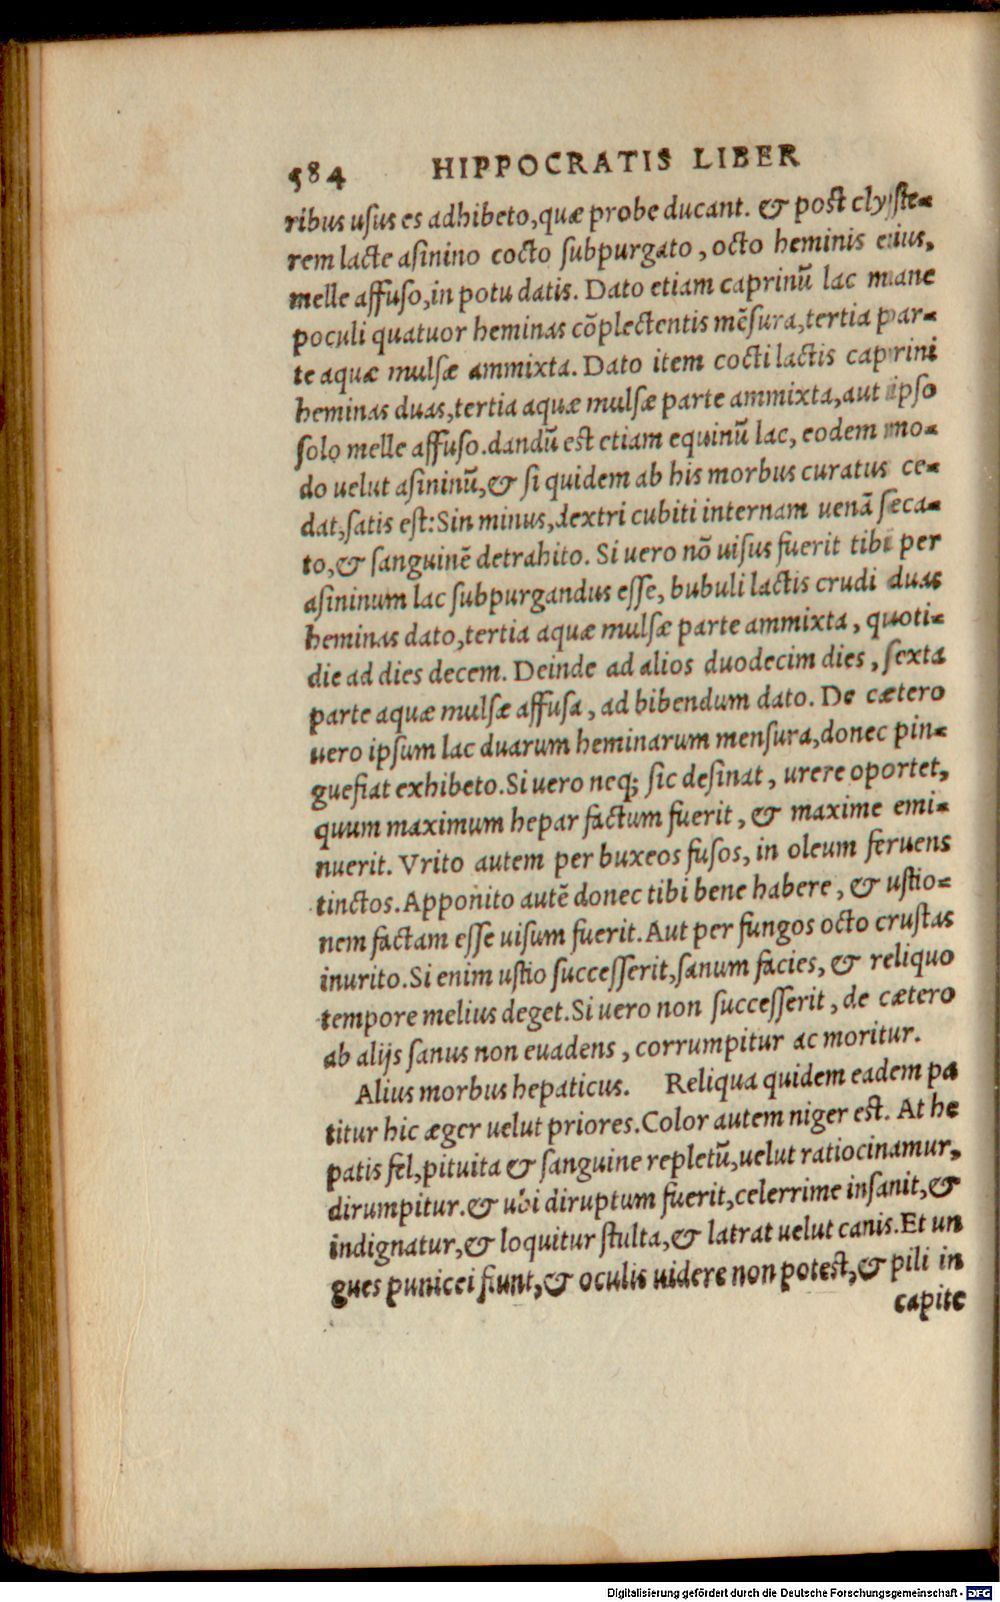 584 HIPPOCRATIS LIBER
ribus usus es adhibeto, quæ probe ducant. & post clyste-
rem lacte asinino cocto subpurgato, octo heminis eius,
melle affuso, in potu datis. Dato etiam caprinū lac mane
poculi quatuor heminas cōplectentis mēsura, tertia par-
te aquæ mulsæ ammixta. Dato item cocti lactis caprini
heminas duas, tertia aquæ mulsæ parte ammixta, aut ipso
solo melle affuso. dandū est etiam equinū lac, eodem mo-
do uelut asininū, & si quidem ab his morbus curatus ce-
dat, satis est: Sin minus, dextri cubiti internam uenā seca-
to, & sanguinē detrahito. Si uero nō uisus fuerit tibi per
asininum lac subpurgandus esse, bubuli lactis crudi duas
heminas dato, tertia aquæ mulsæ parte ammixta, quoti-
die ad dies decem. Deinde ad alios duodecim dies, sexta
parte aquæ mulsæ affusa, ad bibendum dato. De cætero
uero ipsum lac duarum heminarum mensura, donec pin-
guefiat exhibeto. Si uero neq; sic desinat, urere oportet,
quum maximum hepar factum fuerit, & maxime emi-
nuerit. Vrito autem per buxeos fusos, in oleum feruens
tinctos. Apponito autē donec tibi bene habere, & ustio-
nem factam esse uisum fuerit. Aut per fungos octo crustas
inurito. Si enim ustio successerit, sanum facies, & reliquo
tempore melius deget. Si uero non successerit, de cætero
ab alijs sanus non euadens, corrumpitur ac moritur.
Alius morbus hepaticus. Reliqua quidem eadem pa
titur hic æger uelut priores. Color autem niger est. At he
patis fel, pituita & sanguine repletū, uelut ratiocinamur,
dirumpitur. & ubi diruptum fuerit, celerrime insanit, &
indignatur, & loquitur stulta, & latrat uelut canis. Et un
gues punicei fiunt, & oculis uidere non potest, & pili in
capite
Digitalisierung gefördert durch die Deutsche Forschungsgemeinschaft - DFG